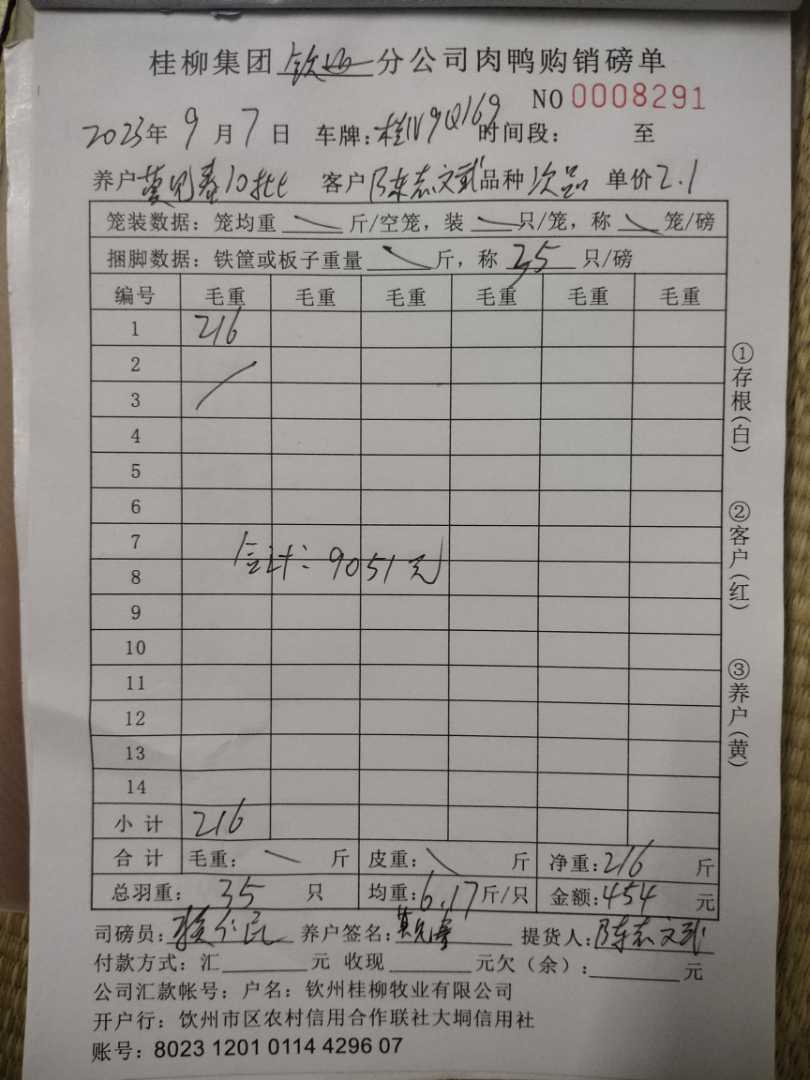 桂柳集团钦州分公司肉鸭购销磅单
NO 0008291
2023年 9 月 7 日 车牌:桂N9Q169时间段: 至
养户 10批 客户陈志文武品种次品 单价2.1
笼装数据:笼均重 斤/空笼,装 只/笼,称 笼/磅
捆脚数据:铁筐或板子重量 斤,称 35 只/磅
编号 毛重 毛重 毛重 毛重 毛重 毛重
1 216
2
3
4
5
6
7
合计:9051元
8
9
10
11
12
13
14
小计 216
合计 毛重: 斤 皮重: 斤 净重:216 斤
总羽重: 35 只 均重:6.17斤/只 金额:454 元
司磅员: 养户签名: 提货人:陈志文武
付款方式:汇 元 收现 元欠(余): 元
公司汇款帐号:户名:钦州桂柳牧业有限公司
开户行:饮州市区农村信用合作联社大垌信用社
账号:8023 1201 0114 4296 07
①存根(白)
②客户(红)
③养户(黄)